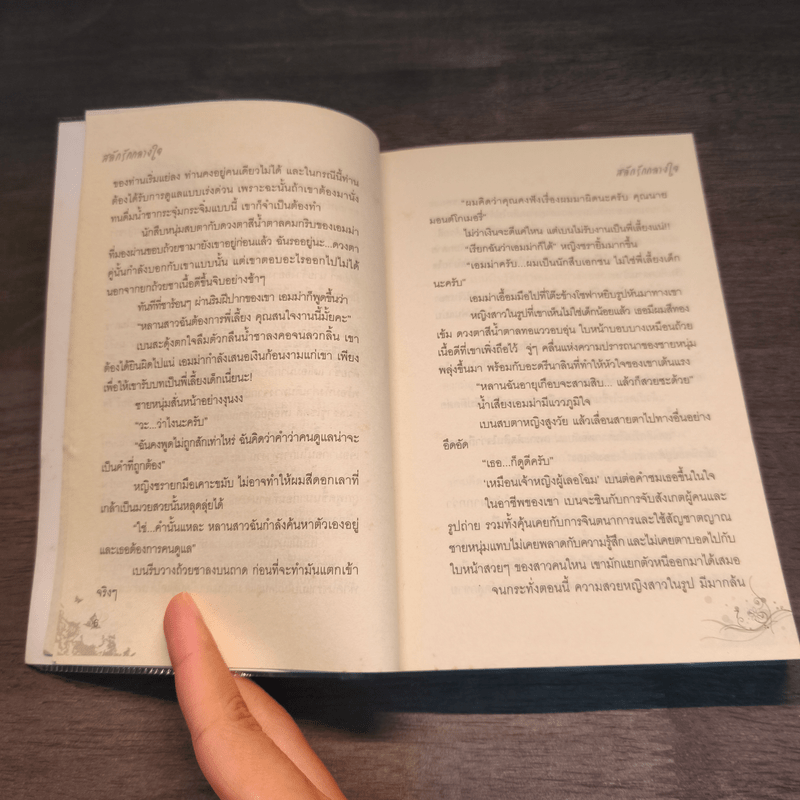 สลักรักกลางใจ
ของท่านเริ่มแย่ลง ท่านคงอยู่คนเดียวไม่ได้ และในกรณีนี้ท่าน
ต้องได้รับการดูแลแบบเร่งด่วน เพราะฉะนั้นถ้าเขาต้องมานั่ง
ทนดื่มน้ำชากระจุ๋มกระจิ๋มแบบนี้ เขาก็จำเป็นต้องทำ
นักสืบหนุ่มสบตากับดวงตาสีน้ำตาลคมกริบของเอมม่า
ที่มองผ่านขอบถ้วยชามายังเขาอยู่ก่อนแล้ว ฉันรออยู่นะ...ดวงตา
คู่นั้นกำลังบอกกับเขาแบบนั้น แต่เขาตอบอะไรออกไปไม่ได้
นอกจากยกถ้วยชาเนื้อดีขึ้นจิบอย่างช้าๆ
ทันทีที่ชาร้อนๆ ผ่านริมฝีปากของเขา เอมม่าก็พูดขึ้นว่า
“หลานสาวฉันต้องการพี่เลี้ยง คุณสนใจงานนี้มั้ยคะ”
เบนสะดุ้งตกใจลืมตัวกลืนน้ำชาลงคอจนลวกลิ้น เขา
ต้องได้ยินผิดไปแน่ เอมม่ากำลังเสนอเงินก้อนงามแก่เขา เพียง
เพื่อให้เขารับบทเป็นพี่เลี้ยงเด็กเนี่ยนะ!
ชายหนุ่มสั่นหน้าอย่างงุนงง
“วะ...ว่าไงนะครับ”
“ฉันคงพูดไม่ถูกสักเท่าไหร่ ฉันคิดว่าคำว่าคนดูแลน่าจะ
เป็นคำที่ถูกต้อง”
หญิงชรายกมือเคาะขมับ ไม่อาจทำให้ผมสีดอกเลาที่
เกล้าเป็นมวยสวยนั้นหลุดลุ่ยได้
“ใช่...คำนั้นแหละ หลานสาวฉันกำลังค้นหาตัวเองอยู่
และเธอต้องการคนดูแล”
เบนรีบวางถ้วยชาลงบนถาด ก่อนที่จะทำมันแตกเข้า
จริงๆ
สลักรักกลางใจ
“ผมคิดว่าคุณคงฟังเรื่องผมมาผิดนะครับ คุณนาย
มอนต์โกเมอรี่”
ไม่ว่าเงินจะดีแค่ไหน แต่เบนไม่รับงานเป็นพี่เลี้ยงแน่!!
“เรียกฉันว่าเอมม่าก็ได้” หญิงชรายิ้มมากขึ้น
“เอมม่าครับ...ผมเป็นนักสืบเอกชน ไม่ใช่พี่เลี้ยงเด็ก
นะครับ”
เอมม่าเอื้อมมือไปที่โต๊ะข้างโซฟาหยิบรูปหันมาทางเขา
หญิงสาวในรูปที่เขาเห็นไม่ใช่เด็กน้อยแล้ว เธอมีผมสีทอง
เข้ม ดวงตาสีน้ำตาลทอแววอบอุ่น ใบหน้าบอบบางเหมือนถ้วย
เนื้อดีที่เขาเพิ่งถือไว้ จู่ๆ คลื่นแห่งความปรารถนาของชายหนุ่ม
พลุ่งขึ้นมา พร้อมกับอะดรีนาลินที่ทำให้หัวใจของเขาเต้นแรง
“หลานฉันอายุเกือบจะสามสิบ... แล้วก็สวยซะด้วย”
น้ำเสียงเอมม่ามีแววภูมิใจ
เบนสบตาหญิงสูงวัย แล้วเลื่อนสายตาไปทางอื่นอย่าง
อึดอัด
“เธอ...ก็ดูดีครับ”
‘เหมือนเจ้าหญิงผู้เลอโฉม’ เบนต่อคำชมเธอขึ้นในใจ
ในอาชีพของเขา เบนจะชินกับการจับสังเกตผู้คนและ
รูปถ่าย รวมทั้งคุ้นเคยกับการจินตนาการและใช้สัญชาตญาณ
ชายหนุ่มแทบไม่เคยพลาดกับความรู้สึก และไม่เคยตาบอดไปกับ
ใบหน้าสวยๆ ของสาวคนไหน เขามักแยกตัวหนีออกมาได้เสมอ
จนกระทั่งตอนนี้ ความสวยหญิงสาวในรูป มีมากล้น